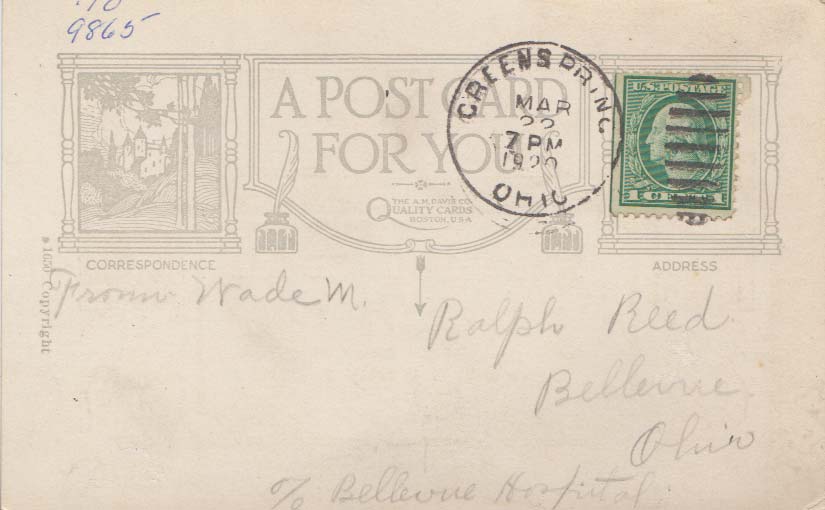 9865
A POST CARD
FOR YOU
THE A.M. DAVIS CO.
QUALITY CARDS
BOSTON, U.S.A.
CORRESPONDENCE
ADDRESS
GREENSPRING
MAR
22
7 PM
1920
OHIO
U.S. POSTAGE
1 CENT 1
1020 Copyright
From Wade M.
Ralph Reed
Bellevue
Ohio
c/o Bellevue Hospital